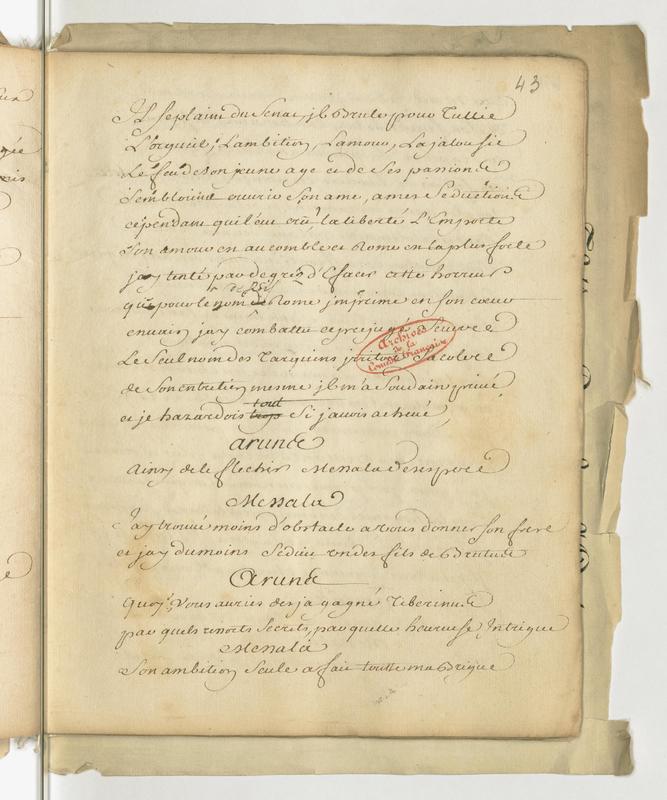 43
Il se plaint du Senat, il brule pour Tullie
L'orgueil, L'ambition, L'amour, La jalousie
Le feu de son jeune age et de ses passions
Sembloient ouvrir son ame, a mes seductions
cependant qui l'eut crû, la liberté L'emporte
Son amour en au comble et Rome en la plus forte
jay tenté par degrez d'Efacer cette horreur
de Roi
que pour le nom de Rome imprime en son coeur
envain jay combattu ce prejugé severe
Le Seul nom des Tarquins irritoit sa colere
Archives de la Comédie Française
de son entretien mesme il m'a soudain privé
tout
et je hazardois trop si j'avois achevé
arunce
ainsy de le flechir Messala desespere
Messala
Jay trouvé moins d'obstacle a vous donner son frere
et jay du moins seduit un des fils de Brutus
Arunce
quoy, Vous auries desja gagné Tiberinus
par quels resorts secrets, par quelle heureuse Intrigue
Messala
Son ambition seule a fait toutte ma Brigue